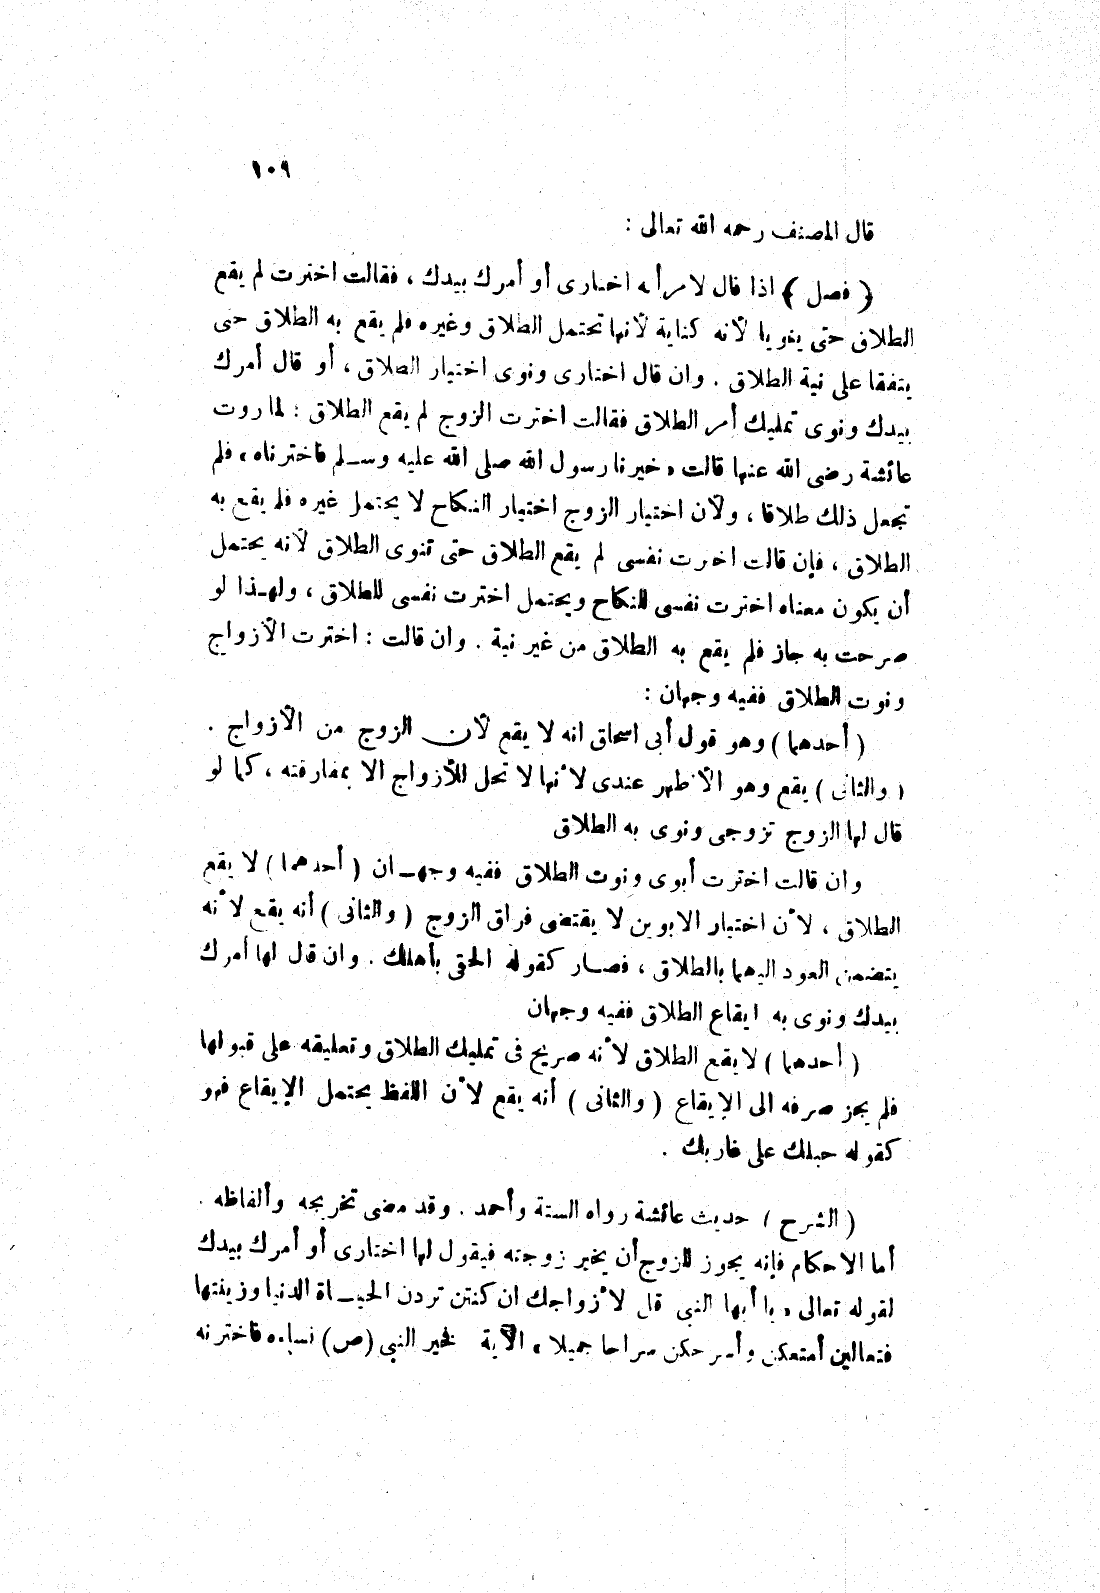 ١٠٩
قال المصنف رحمه الله تعالى :
( فصل ) اذا قال لامرأته اختارى أو أمرك بيدك ، فقالت اخترت لم يقع
الطلاق حتى ينويا لأنه كناية لأنها تحتمل الطلاق وغيره فلم يقع به الطلاق حتى
يتفقا على نية الطلاق . وان قال اختارى ونوى اختيار الطلاق ، أو قال أمرك
بيدك ونوى تمليك أمر الطلاق فقالت اخترت الزوج لم يقع الطلاق : لما روت
عائشة رضى الله عنها قالت « خيرنا رسول الله صلى الله عليه وسلم فاخترناه ، فلم
تجعل ذلك طلاقا ، ولأن اختيار الزوج اختيار النكاح لا يحتمل غيره فلم يقع به
الطلاق ، فإن قالت اخترت نفسى لم يقع الطلاق حتى تنوى الطلاق لأنه يحتمل
أن يكون معناه اخترت نفسى للنكاح ويحتمل اخترت نفسى للطلاق ، ولهذا لو
صرحت به جاز فلم يقع به الطلاق من غير نية . وان قالت : اخترت الأزواج
ونوت الطلاق ففيه وجهان :
( أحدهما ) وهو قول أبى اسحاق انه لا يقع لأن الزوج من الأزواج .
( والثانى ) يقع وهو الأظهر عندى لأنها لا تحل للأزواج الا بمفارقته ، كما لو
قال لها الزوج تزوجى ونوى به الطلاق
وان قالت اخترت أبوى ونوت الطلاق ففيه وجهان ( أحدهما ) لا يقع
الطلاق ، لأن اختيار الابوين لا يقتضى فراق الزوج ( والثانى ) أنه يقع لأنه
يتضمن العود اليهما بالطلاق ، فصار كقوله الحقى بأهلك . وان قال لها أمرك
بيدك ونوى به ايقاع الطلاق ففيه وجهان
( أحدهما ) لا يقع الطلاق لأنه صريح فى تمليك الطلاق وتعليقه على قبولها
فلم يجز صرفه الى الإيقاع ( والثانى ) أنه يقع لأن اللفظ يحتمل الإيقاع فهو
كقوله حبلك على غاربك .
( الشرح ) حديث عائشة رواه الستة وأحمد . وقد مضى تخريجه وألفاظه .
أما الاحكام فإنه يجوز للزوج أن يخير زوجته فيقول لها اختارى أو أمرك بيدك
لقوله تعالى « يا أيها النبى قل لأزواجك ان كنتن تردن الحياة الدنيا وزينتها
فتعالين أمتعكن وأسرحكن سراحا جميلا » الآية فخير النبى (ص) نساءه فاخترنه